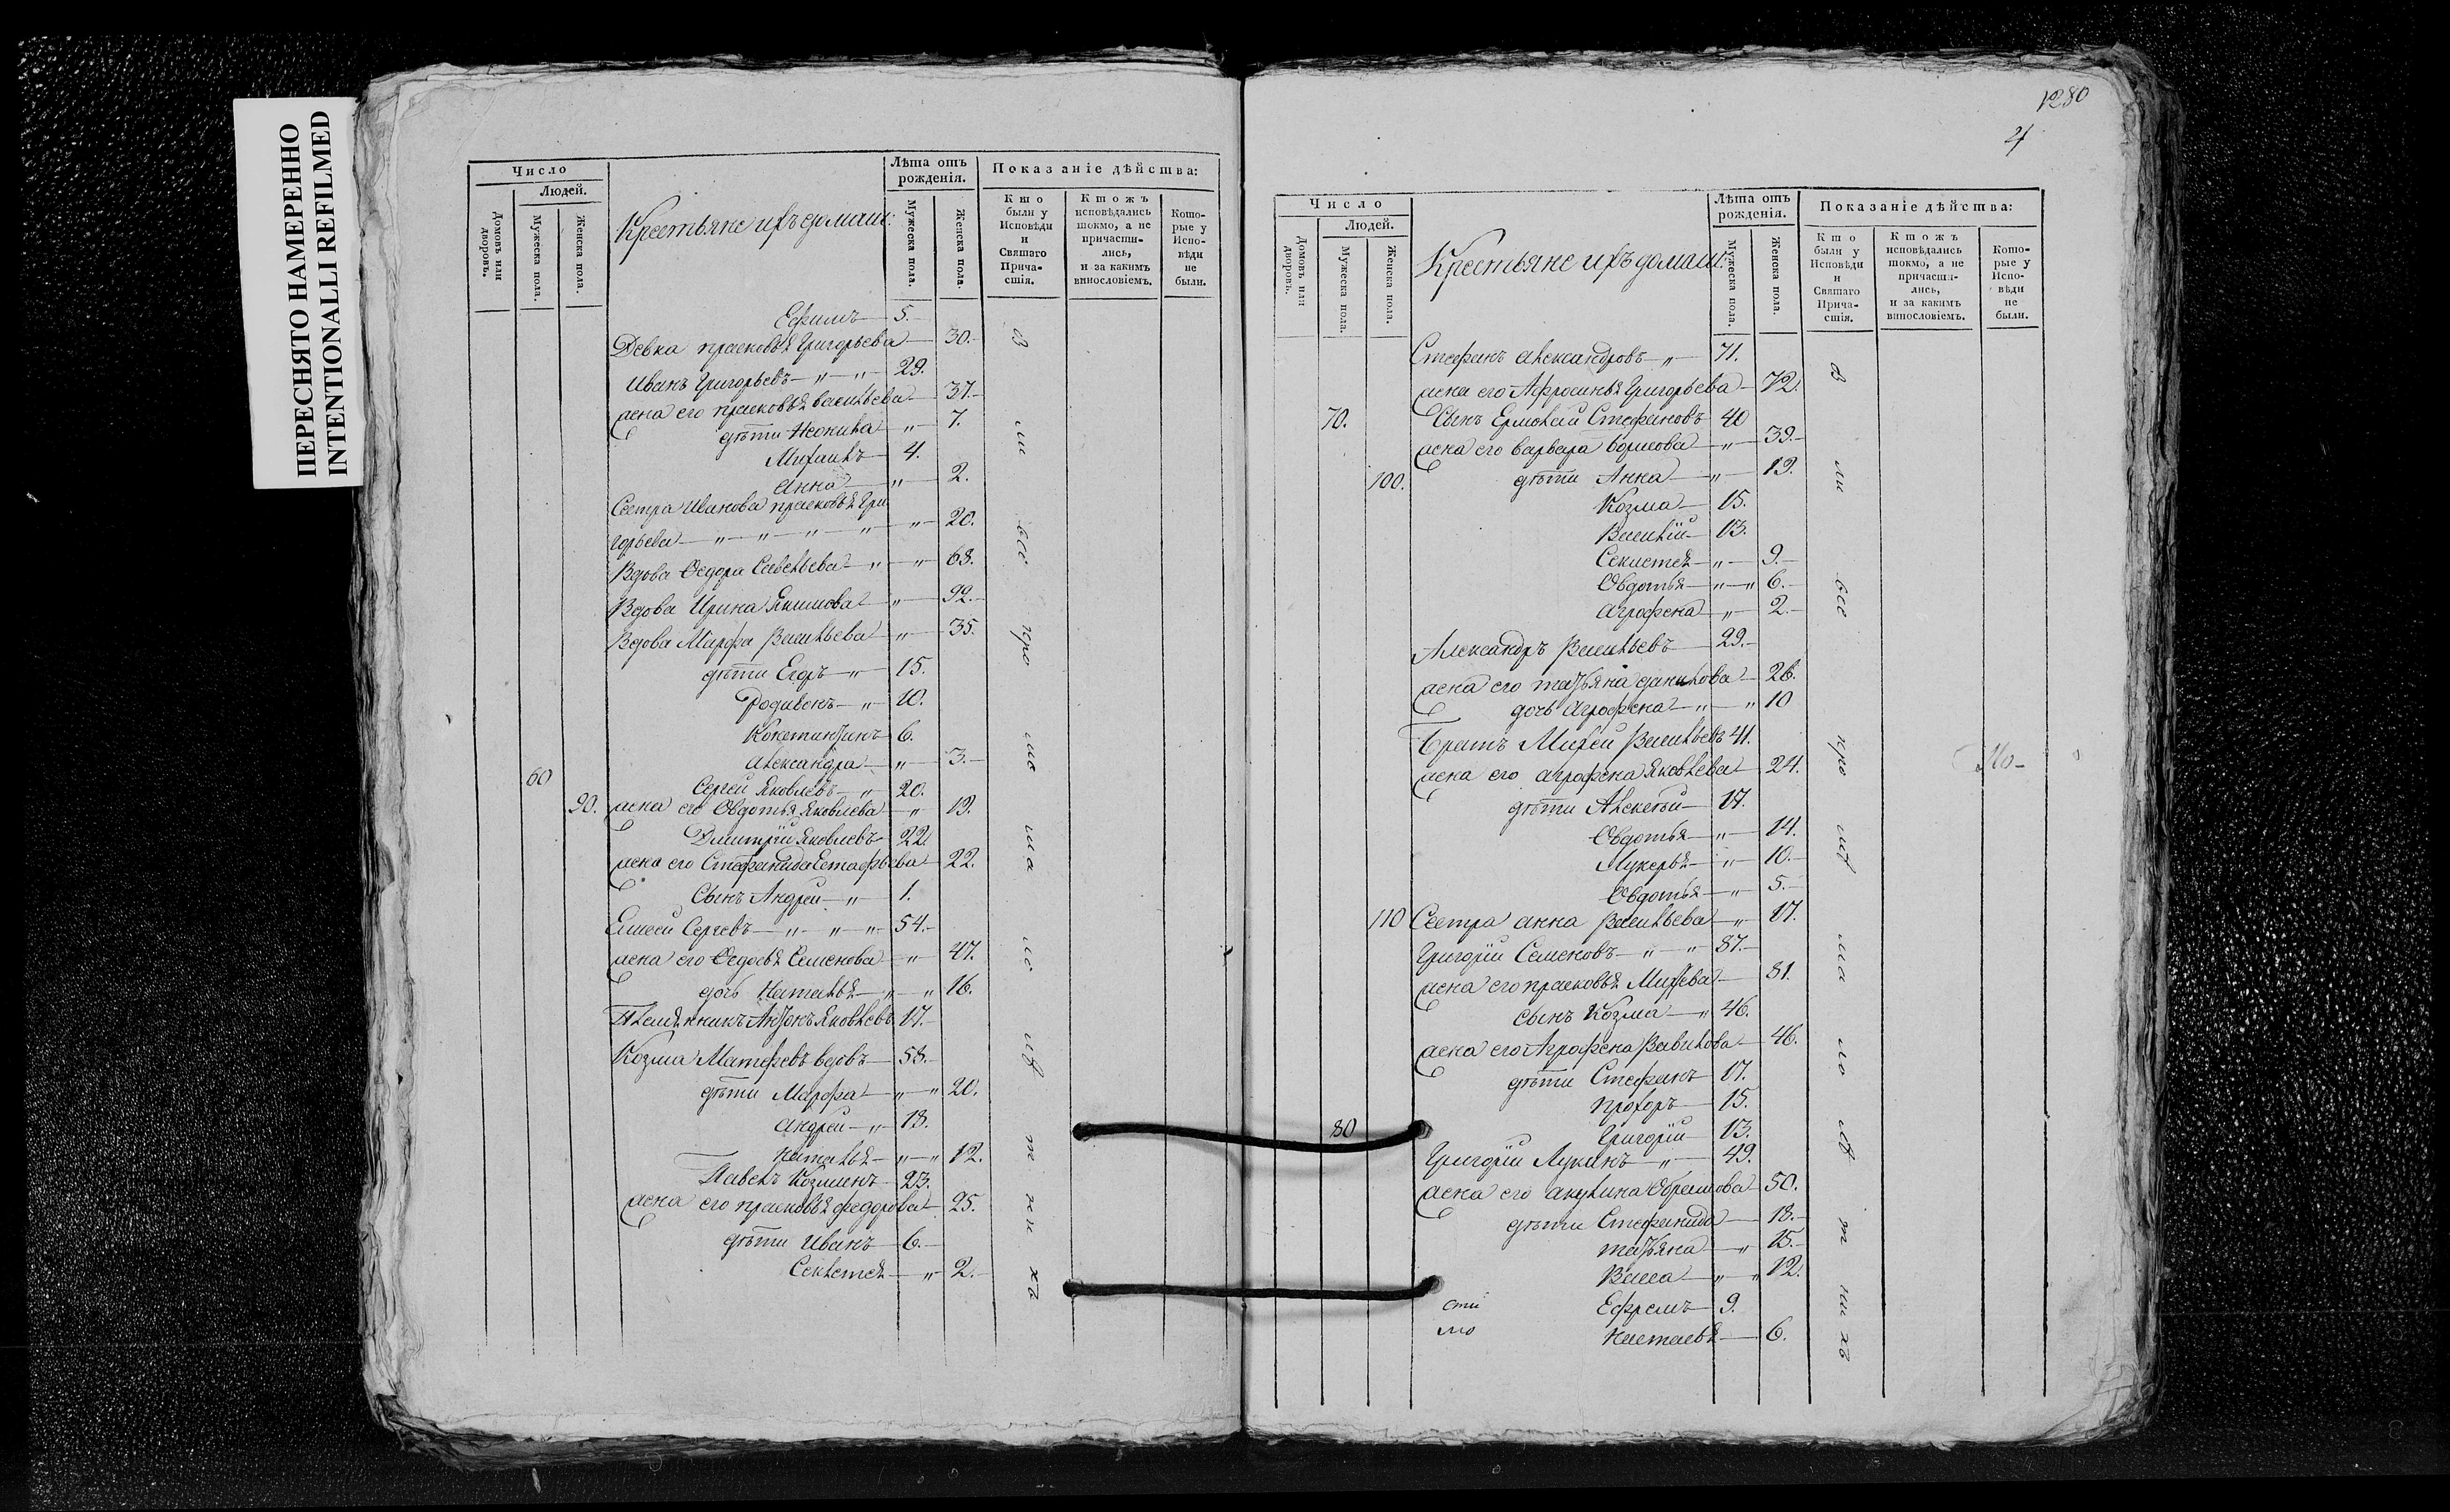 ПЕРЕСНЯТО НАМЕРЕННО
INTENTIONALLI REFILMED
Число
Людей.
Домовъ или дворовъ.
Мужеска пола.
Женска пола.
Крестьяне ихъ домаш:
Лѣта отъ рожденія.
Мужеска пола.
Женска пола.
Показаніе дѣйства:
Кто были у Исповѣди и Святаго Причастія.
Ктожъ исповѣдались токмо, а не причастились, и за какимъ винословіемъ.
Которые у Исповѣди не были.
Ефимъ 5.
Девка прасковья Григорьева 30.
Иванъ Григорьевъ 29.
жена его прасковья васильева 37.
дѣти Неонила 7.
Михаилъ 4.
Анна 2.
Сестра Иванова прасковья Гри
горьева 20.
Вдова Ѳедора Савельева 68.
Вдова Ирина Якимова 92.
Вдова Марфа Васильева 35.
дѣти Егоръ 15.
Родивонъ 10.
Констинтинъ 6.
Александра 3.
60 Сергей Яковлевъ 20.
90. жена его Овдотья Яковлева 19.
Дмитрій Яковлевъ 22.
жена его Стефанида Естафьева 22.
Сынъ Андреи 1.
Елисеи Сергевъ 54.
жена его Ѳедосья Семенова 47.
дочь Наталья 16.
Племянникъ Антонъ Яковлевъ 17.
Козма Матфевъ вдовъ 58.
дѣти Марфа 20.
Андреи 18.
Наталья 12.
Павелъ Козминъ 23.
жена его прасковья федорова 25.
дѣти Иванъ 6.
Секлетея 2.
1280
4
Число
Людей.
Домовъ или дворовъ.
Мужеска пола.
Женска пола.
Крестьяне ихъ домаш:
Лѣта отъ рожденія.
Мужеска пола.
Женска пола.
Показаніе дѣйства:
Кто были у Исповѣди и Святаго Причастія.
Ктожъ исповѣдались токмо, а не причастились, и за какимъ винословіемъ.
Которые у Исповѣди не были.
Стефанъ Александровъ 71.
жена его Афросинья Григорьева 72.
70. Сынъ Ермолаи Стефановъ 40
жена его варвара борисова 39.
100. дѣти Анна 19.
Козма 15.
Василій 13.
Секлетея 9.
Овдотья 6.
Агрофена 2.
Александръ Васильевъ 29.
жена его татьяна данилова 26.
дочь Агрофена 10
Братъ Михеи Васильевъ 41.
жена его агрофена Яковлева 24.
дѣти Алексеи 17.
Овдотья 14.
Лукерья 10.
Овдотья 5.
110 Сестра анна Васильева 17.
Григорій Семеновъ 87.
жена его прасковья Михева 81.
сынъ Козма 46.
жена его Агрофена Вавилова 46.
дѣти Стефанъ 17.
прохоръ 15.
80 Григорій 13.
Григорій Лукинъ 49.
жена его акулина Обрамова 50.
дѣти Стефанида 18.
татьяна 15.
Васса 12.
Ефремъ 9.
Настасья 6.